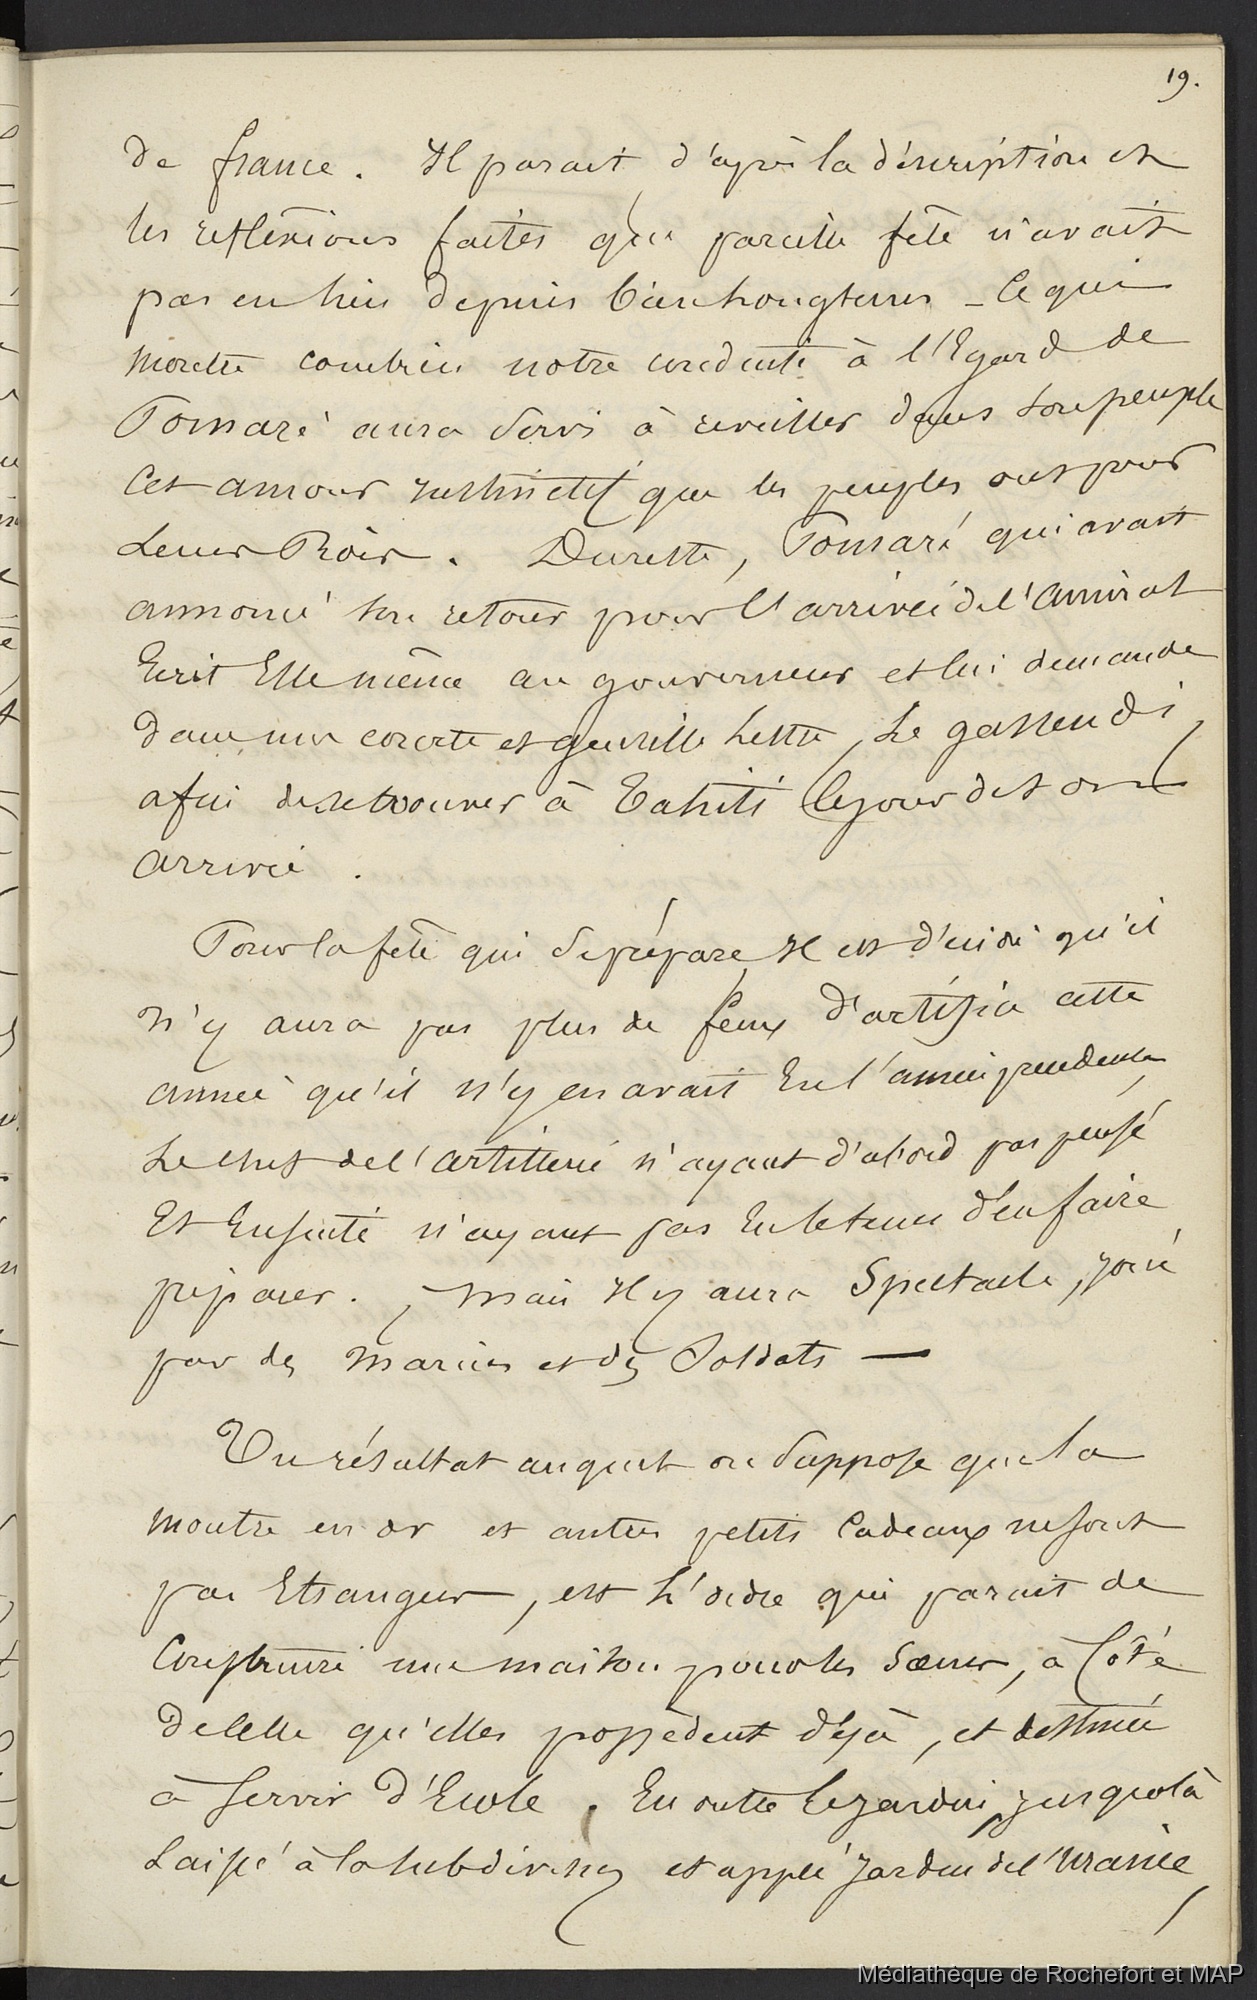 19.
de france. Il parait, d'après la déscription et
les refléxions faites que pareille fête n'avait
pas eu lieu depuis bien longtems - Ce qui
montre combien notre conduite à l'Egard de
Pomaré aura servi à reveiller dans son peuple
Cet amour instinctif que les peuples ont pour
Leurs Rois. Dureste, Pomaré qui avait
annoncé son retour pour l'arrivée de l'Amiral
Ecrit Elle même au gouverneur et lui demande
dans une courte et gentille lettre, le gassendi,
afin de se trouver à Tahiti le jour de son
arrivée.
Pour la fête qui se prépare Il est décidé qu'il
n'y aura pas plus de feux d'artifice cette
année qu'il n'y en avait Eu l'année précédente,
Le chef de l'artillerie n'ayant d'abord pas pensé
Et Ensuite n'ayant pas Eu le tems d'en faire
préparer. , Mais Il y aura Spectacle, joué
par des Marins et des Soldats —
Un résultat auquel on suppose que la
montre en or et autres petits Cadeaux ne sont
pas Etrangers, est l'ordre qui parait de
Construire une maison pour les Sœurs, à Côté
de celle qu'elles possèdent déjà, et destinée
à servir d'Ecole. En outre le jardin, jusque là
Laissé à la et appelé Jardin de l'Uranie,
Médiathèque de Rochefort et MAP